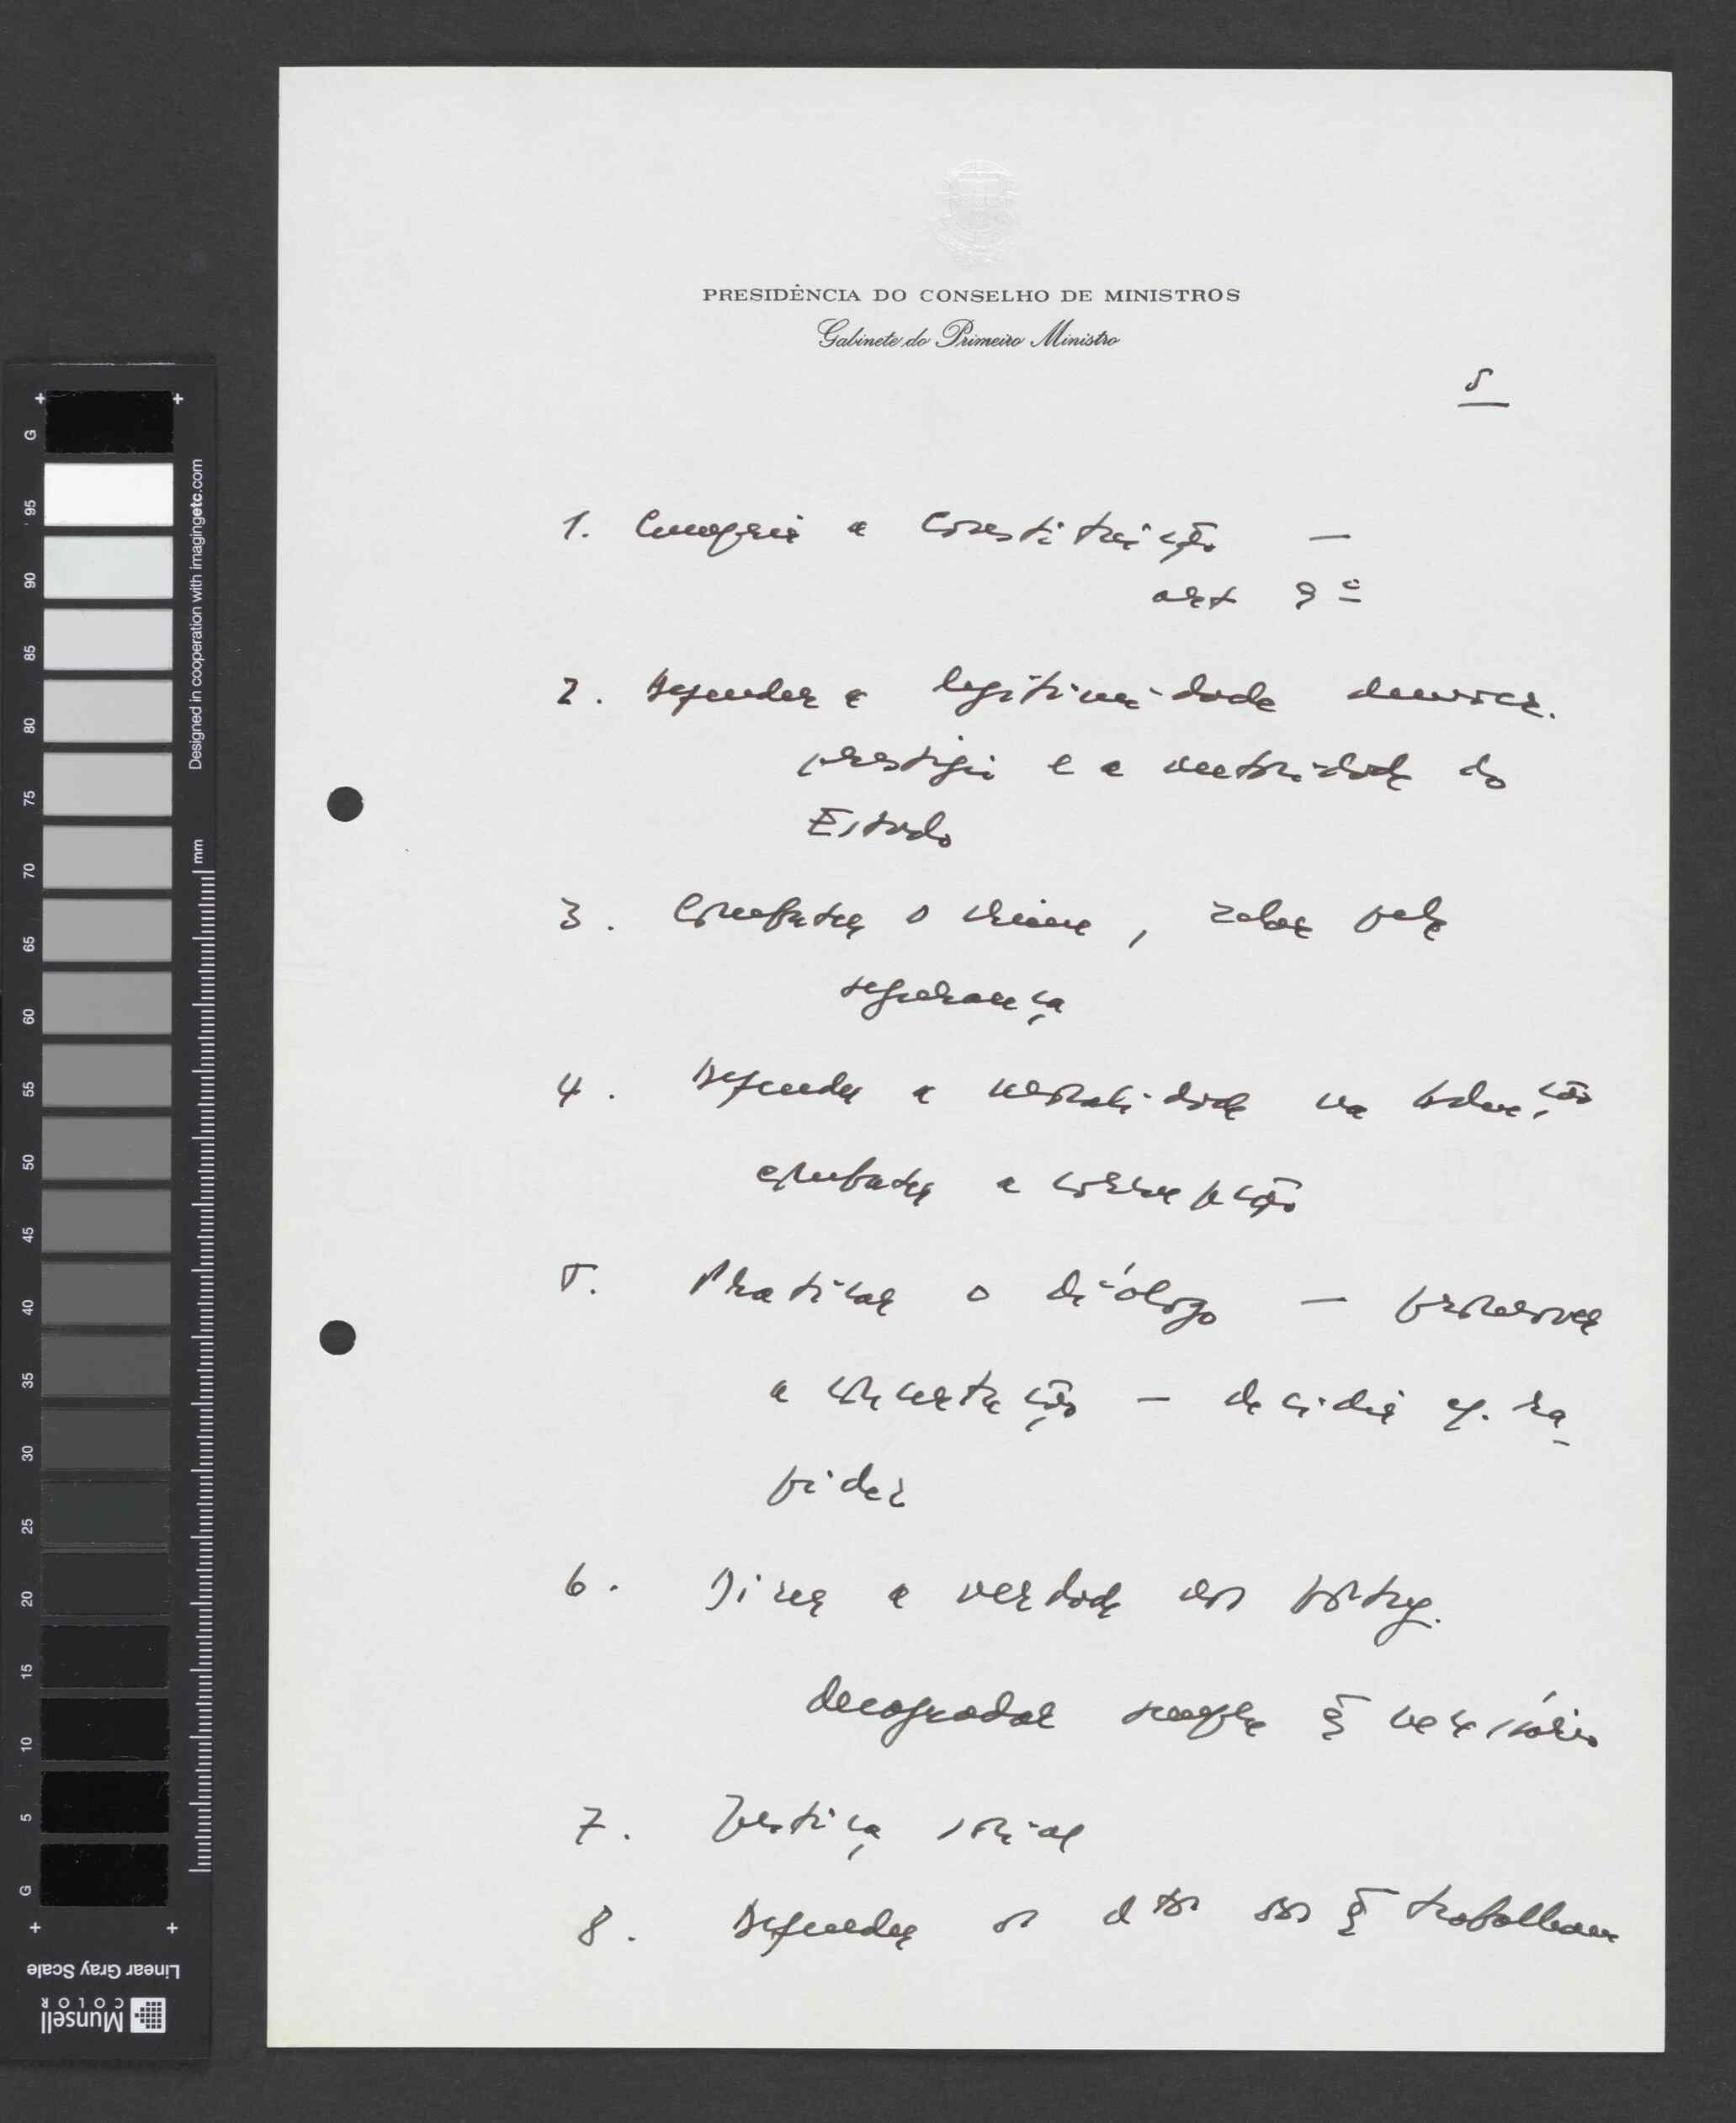 PRESIDÊNCIA DO CONSELHO DE MINISTROS
Gabinete do Primeiro Ministro
5
1. Cumprir a Constituição —
art 9º
2. Defender a legitimidade democr.
prestígio e a autoridade do
Estado
3. Combater o crime, zelar pela
segurança
4. Defender a moralidade na
combater a corrupção
5. Praticar o diálogo — promover
a concertação — decidir c/. ra-
pidez
6. Dizer a verdade aos portug.
desagradar sempre q̃ necessário
7. Justiça social
8. Defender os dtos dos q̃ trabalham
G 95 90 85 80 75 70 65 60 55 50 45 40 35 30 25 20 15 10 5 G
Designed in cooperation with imagingetc.com
mm
Linear Gray Scale
Munsell
COLOR